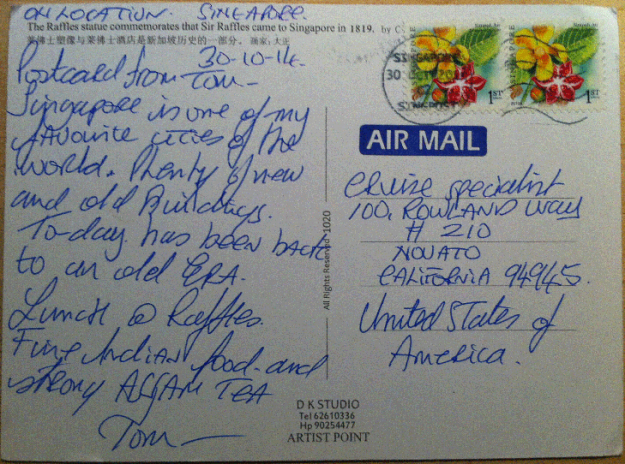 ON LOCATION. SINGAPORE.
The Raffles statue commemorates that Sir Raffles came to Singapore in 1819. by
莱佛士塑像与莱佛士酒店是新加坡历史的一部分。
30-10-14.
Postcard from Tom -
Singapore is one of my
favourite cities of the
world. Plenty of new
and old Buildings.
To-day has been back
to an old ERA.
Lunch @ Raffles.
Fine Indian food-and
strong ASSAM TEA
Tom
SINGAPORE
30 OCT
SINGPOST
1ST
1ST
AIR MAIL
Cruise specialist
100, ROWLAND WAY
# 210
NOVATO
CALIFORNIA 94945.
United States of
America.
All Rights Reserved 1020
D K STUDIO
Tel 62610336
Hp 90254477
ARTIST POINT